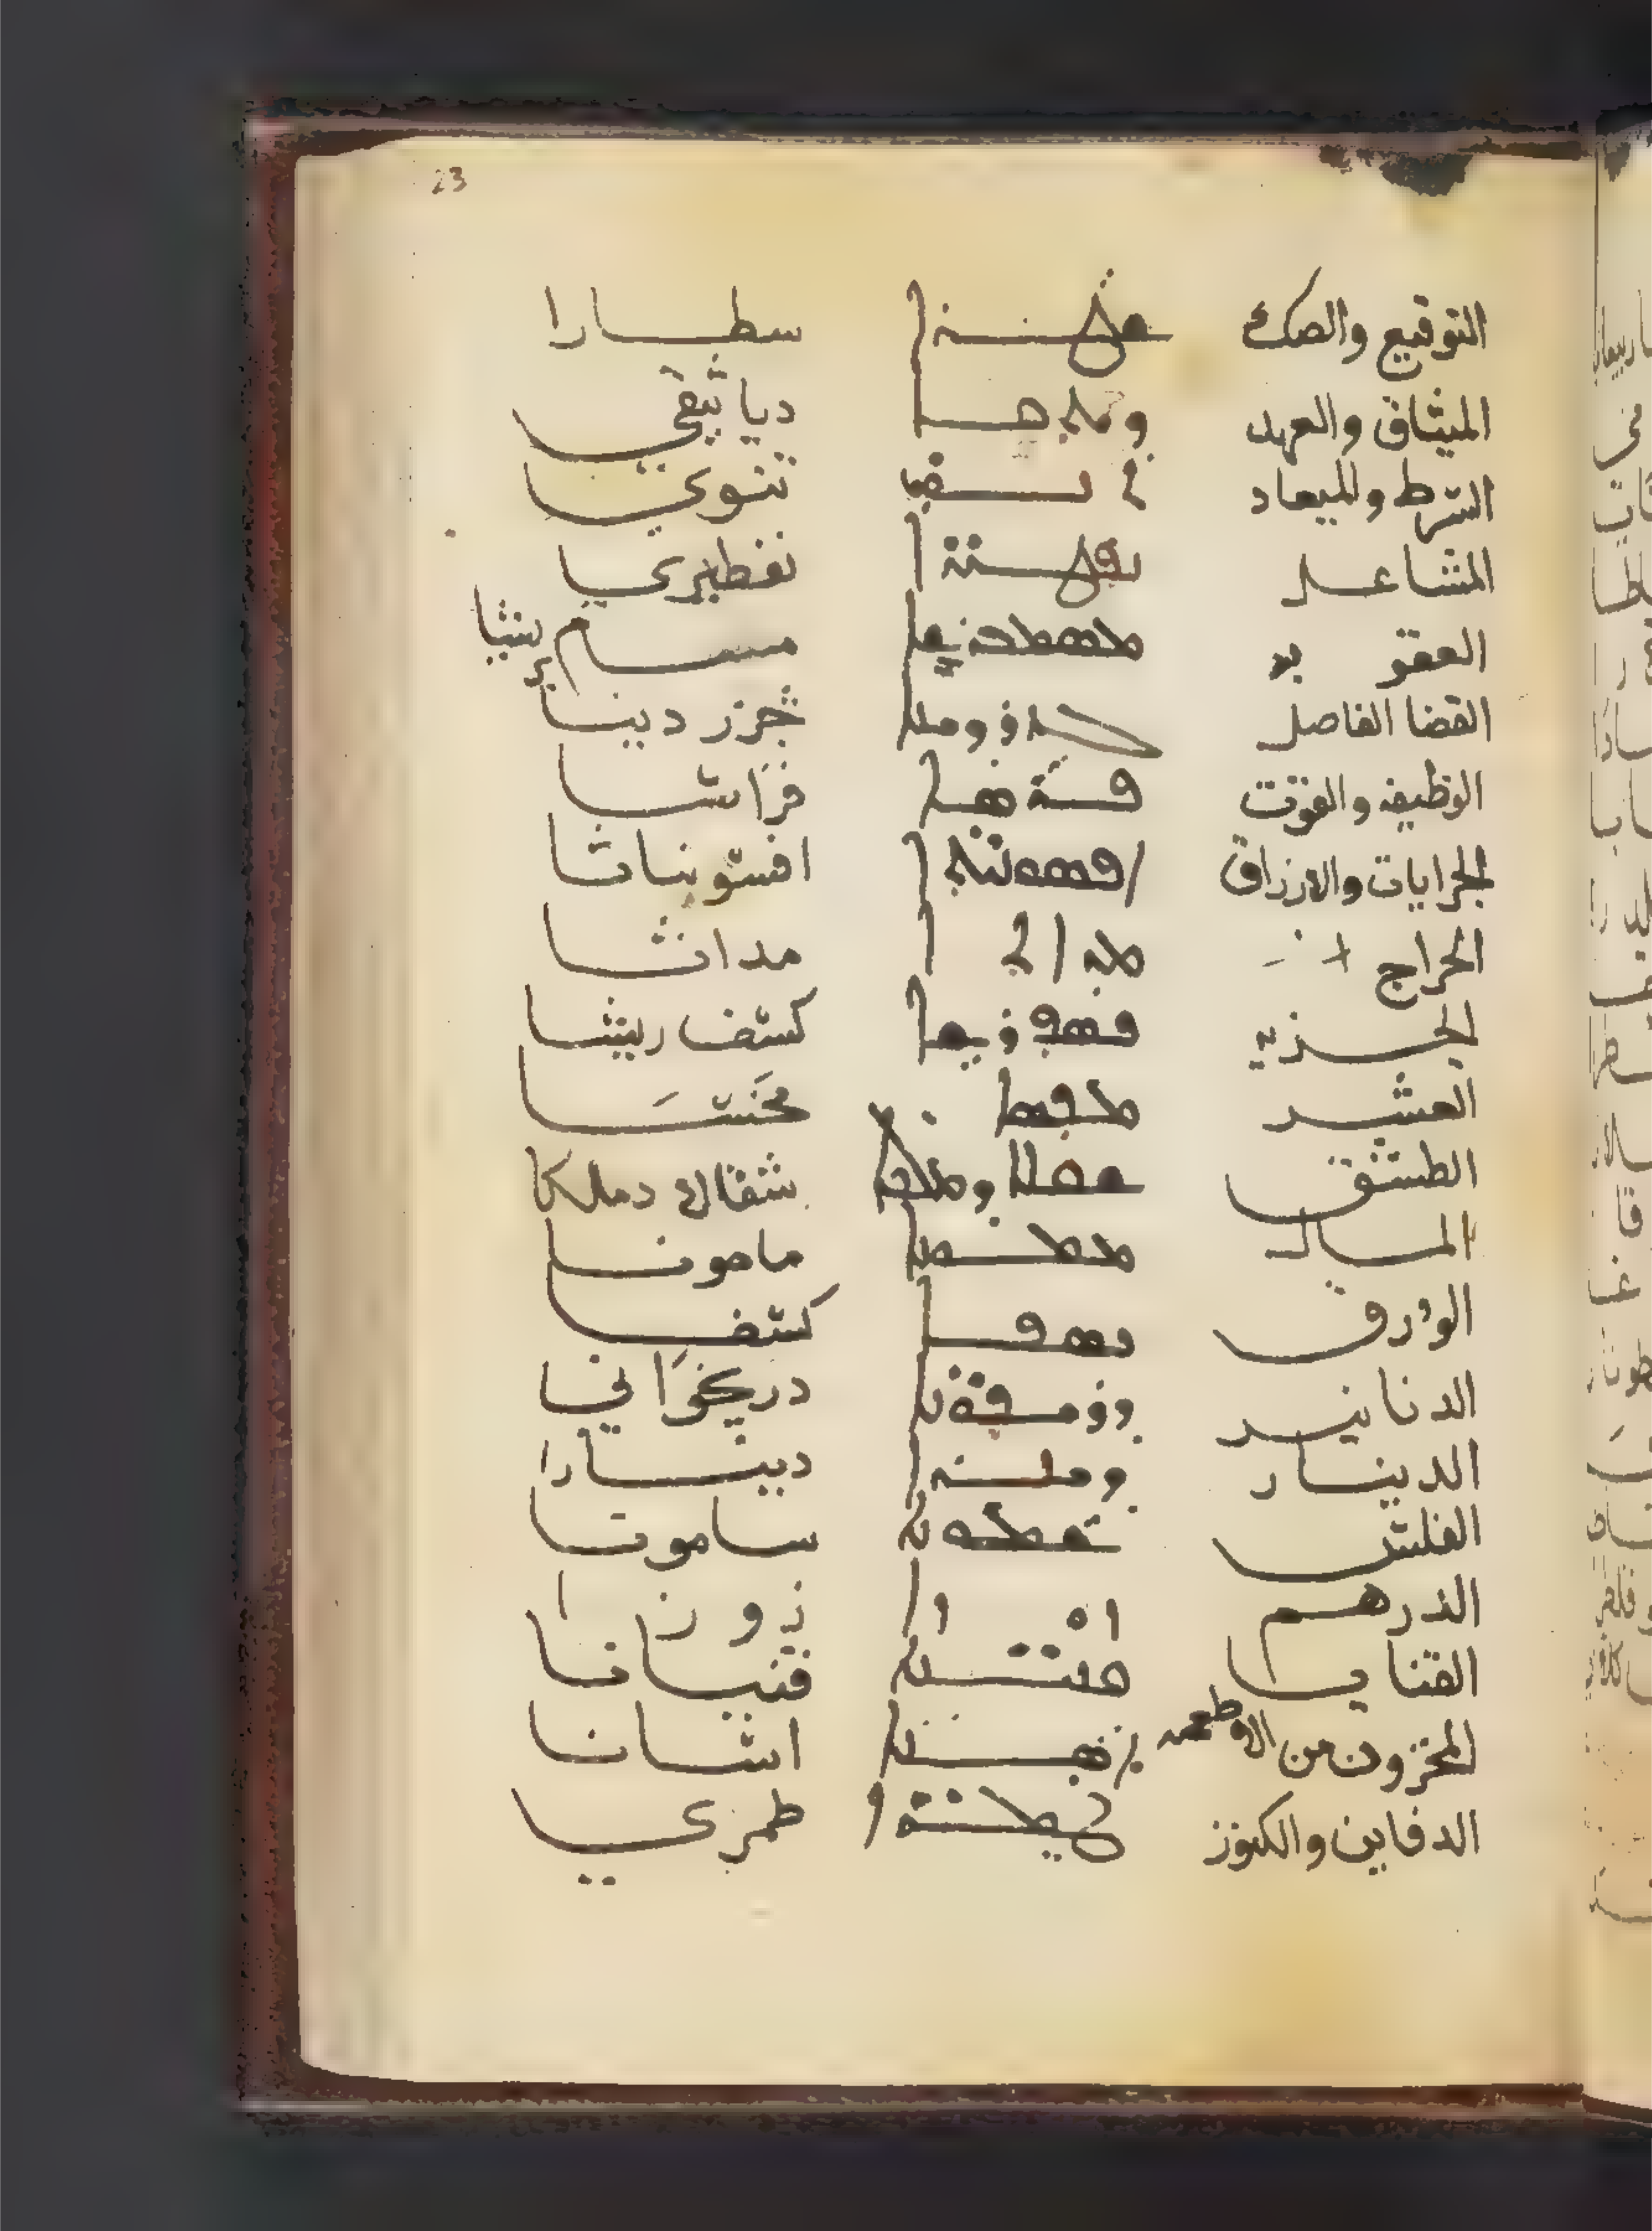 23
التوقيع والصك ܫܛܪܐ سطارا
الميثاق والعهد ܕܝܬܩܐ دياثيقي
الشرط والميعاد تنوي
المشاعل نفطيري
العقو بد مسام بريشا
القضا الفاصل ܓܙܪ ܕܝܢܐ جزر دينا
الوظيفه والقوت ܦܪܣܐ فراسا
الجرايات والارزاق ܐܦܣܘܢܝܬܐ افسونياثا
الخراج ܡܕܐܬܐ مداثا
الجزيه ܟܣܦ ܪܝܫܐ كسف ريشا
العشر ܡܟܣܐ مخسا
الطسق ܫܩܠܐ ܕܡܠܟܐ شقالا دملكا
المال ܡܡܘܢܐ مامونا
الورق ܟܣܦܐ كسفا
الدنانير ܕܪܝܟܘܢܐ دريخواني
الدينار ܕܝܢܪܐ دينارا
الفلس ܫܡܘܢܐ سامونا
الدرهم ܙܘܙܐ زوزا
القنايا ܩܢܝܢܐ قنيانا
المخزون من الاطعمه اسانا
الدفاين والكنوز ܛܡܪܐ طمري